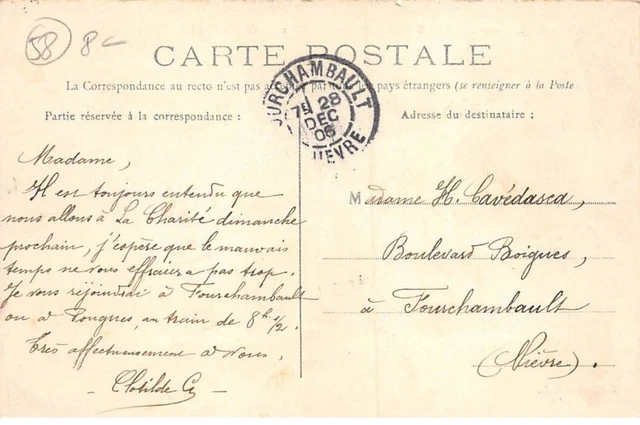 58 8
CARTE POSTALE
La Correspondance au recto n'est pas par pays étrangers (se renseigner à la Poste
Partie réservée à la correspondance :
Adresse du destinataire :
FOURCHAMBAULT
28
DEC
06
NIEVRE
Madame,
Il est toujours entendu que
nous allons à La Charité dimanche
prochain, j'espère que le mauvais
temps ne vous effraiera pas trop.
Je vous rejoindrai à Fourchambault
ou à Pougues, au train de 8h 1/2.
Très affectueusement à vous,
Clotilde
Madame H. Cavédasca,
Boulevard Boigues,
à Fourchambault
(Nièvre).